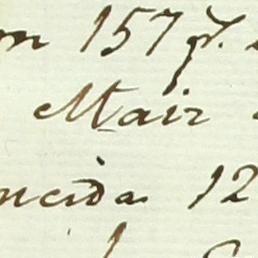 on 157
Mair
ncida 12